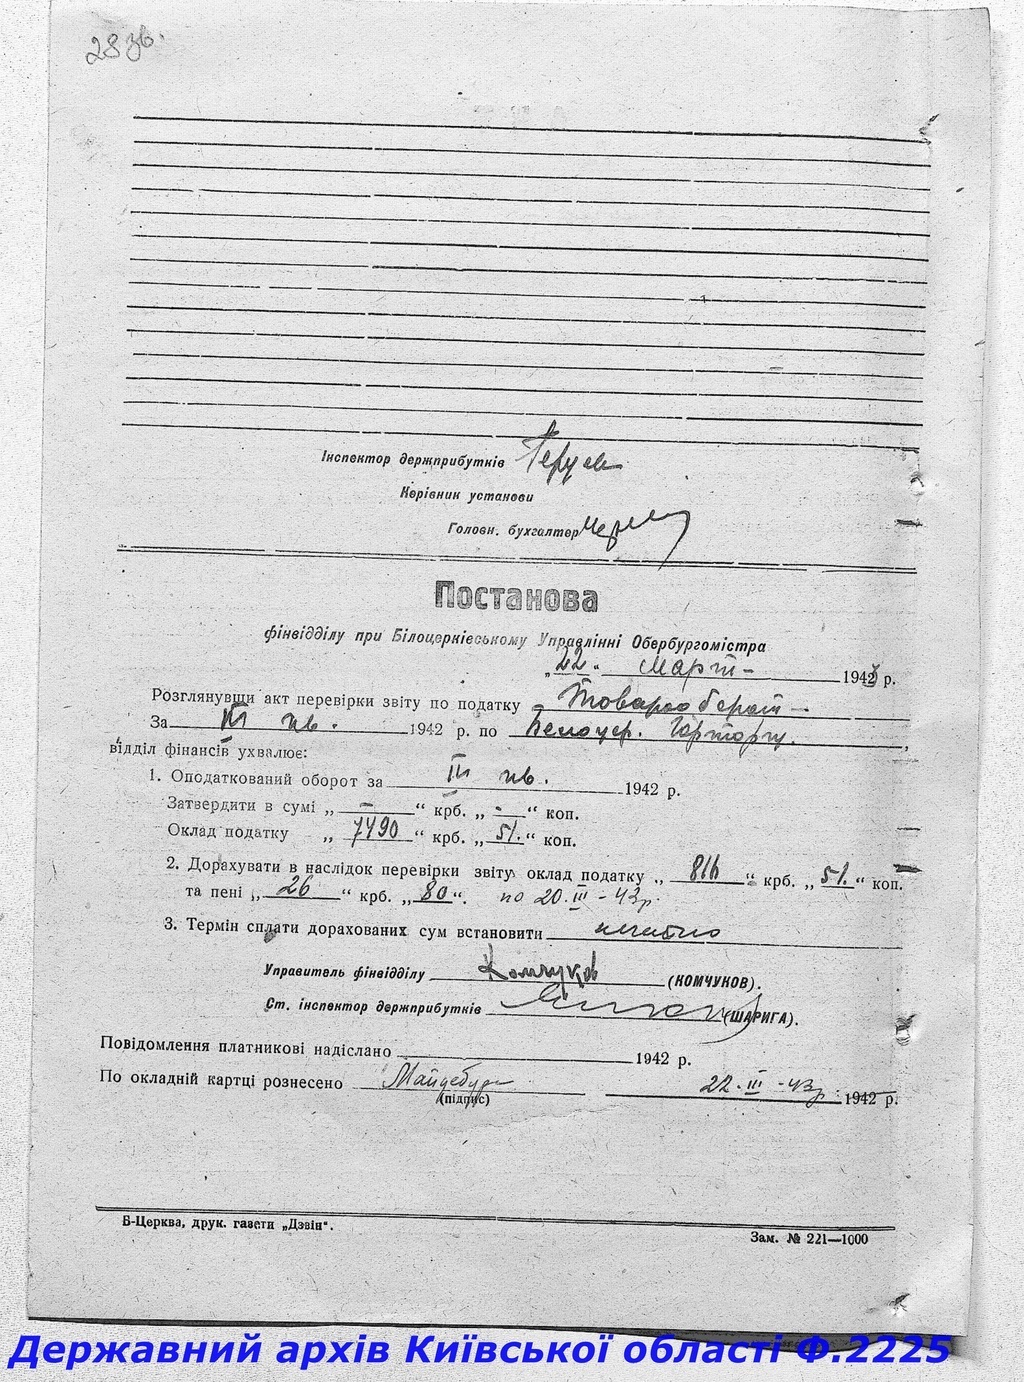 28 зв.
Інспектор держприбутків
Керівник установи
Головн. бухгалтер
Постанова
фінвідділу при Білоцерківському Управлінні Обербургомістра
„22“ Март 1943 р.
Розглянувши акт перевірки звіту по податку Товарооборот
За III кв. 1942 р. по Белоцер. Горторгу,
відділ фінансів ухвалює:
1. Оподаткований оборот за III кв. 1942 р.
Затвердити в сумі „ — “ крб. „ - “ коп.
Оклад податку „ 7490 “ крб. „ 51. “ коп.
2. Дорахувати в наслідок перевірки звіту оклад податку „ 816 “ крб. „ 51. “ коп.
та пені „ 26 “ крб. „ 80 “. по 20.III-43р.
3. Термін сплати дорахованих сум встановити
Управитель фінвідділу Комчуков (КОМЧУКОВ).
Ст. інспектор держприбутків (ШАРИГА).
Повідомлення платникові надіслано 1942 р.
По окладній картці рознесено 22.III-43р. 1942 р.
(підпис)
Б-Церква, друк. газети „Дзвін“.
Зам. № 221—1000
Державний архів Київської області Ф.2225